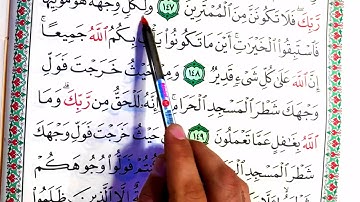 رَّبِّكَ فَلَا تَكُونَنَّ مِنَ الْمُمْتَرِينَ ١٤٧ وَلِكُلٍّ وِجْهَةٌ هُوَ مُوَلِّيهَا
فَاسْتَبِقُوا الْخَيْرَاتِ أَيْنَ مَا تَكُونُوا يَأْتِ بِكُمُ اللَّهُ جَمِيعًا
إِنَّ اللَّهَ عَلَىٰ كُلِّ شَيْءٍ قَدِيرٌ ١٤٨ وَمِنْ حَيْثُ خَرَجْتَ فَوَلِّ
وَجْهَكَ شَطْرَ الْمَسْجِدِ الْحَرَامِ وَإِنَّهُ لَلْحَقُّ مِن رَّبِّكَ وَمَا
اللَّهُ بِغَافِلٍ عَمَّا تَعْمَلُونَ ١٤٩ حَيْثُ خَرَجْتَ فَوَلِّ وَجْهَكَ
شَطْرَ الْمَسْجِدِ كُنتُمْ فَوَلُّوا وُجُوهَكُمْ
إِلَّا الَّذِينَ ظَلَمُوا